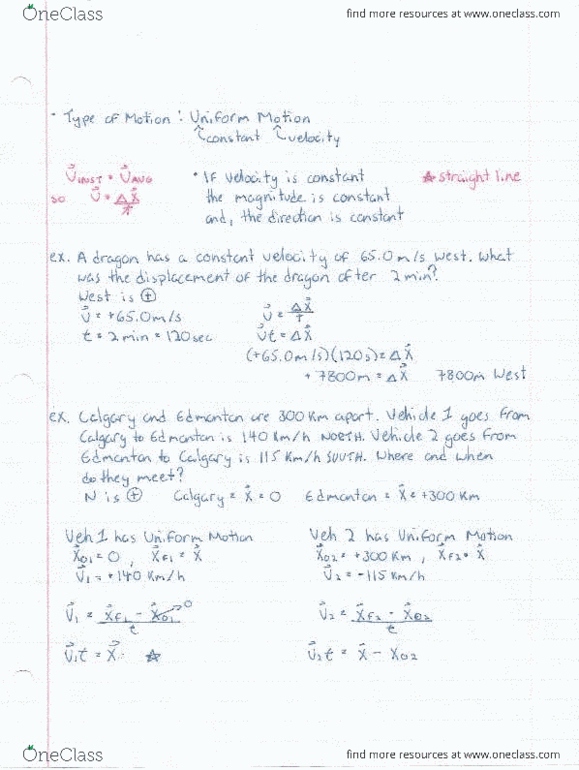 OneClass find more resources at www.oneclass.com
• Type of Motion : Uniform Motion
constant velocity
V⃗INST = V⃗AVG • If velocity is constant ☆ straight line
so V⃗ = ΔX⃗/t the magnitude is constant
and, the direction is constant
ex. A dragon has a constant velocity of 65.0 m/s west. What
was the displacement of the dragon after 2 min?
West is ⊕
V⃗ = +65.0 m/s V⃗ = ΔX⃗/t
t = 2 min = 120 sec V⃗t = ΔX⃗
(+65.0 m/s)(120s) = ΔX⃗
+ 7800m = ΔX⃗ 7800m West
ex. Calgary and Edmonton are 300 Km apart. Vehicle 1 goes from
Calgary to Edmonton is 140 Km/h NORTH. Vehicle 2 goes from
Edmonton to Calgary is 115 Km/h SOUTH. Where and when
do they meet?
N is ⊕ Calgary = X⃗ = 0 Edmonton = X⃗ = +300 Km
Veh 1 has Uniform Motion Veh 2 has Uniform Motion
X⃗01 = 0 , X⃗F1 = X⃗ X⃗02 = +300 Km , X⃗F2 = X⃗
V⃗1 = +140 Km/h V⃗2 = -115 Km/h
V⃗1 = (X⃗F1 - X⃗01)/t 0 V⃗2 = (X⃗F2 - X⃗02)/t
V⃗1t = X⃗ ☆ V⃗2t = X⃗ - X02
OneClass find more resources at www.oneclass.com